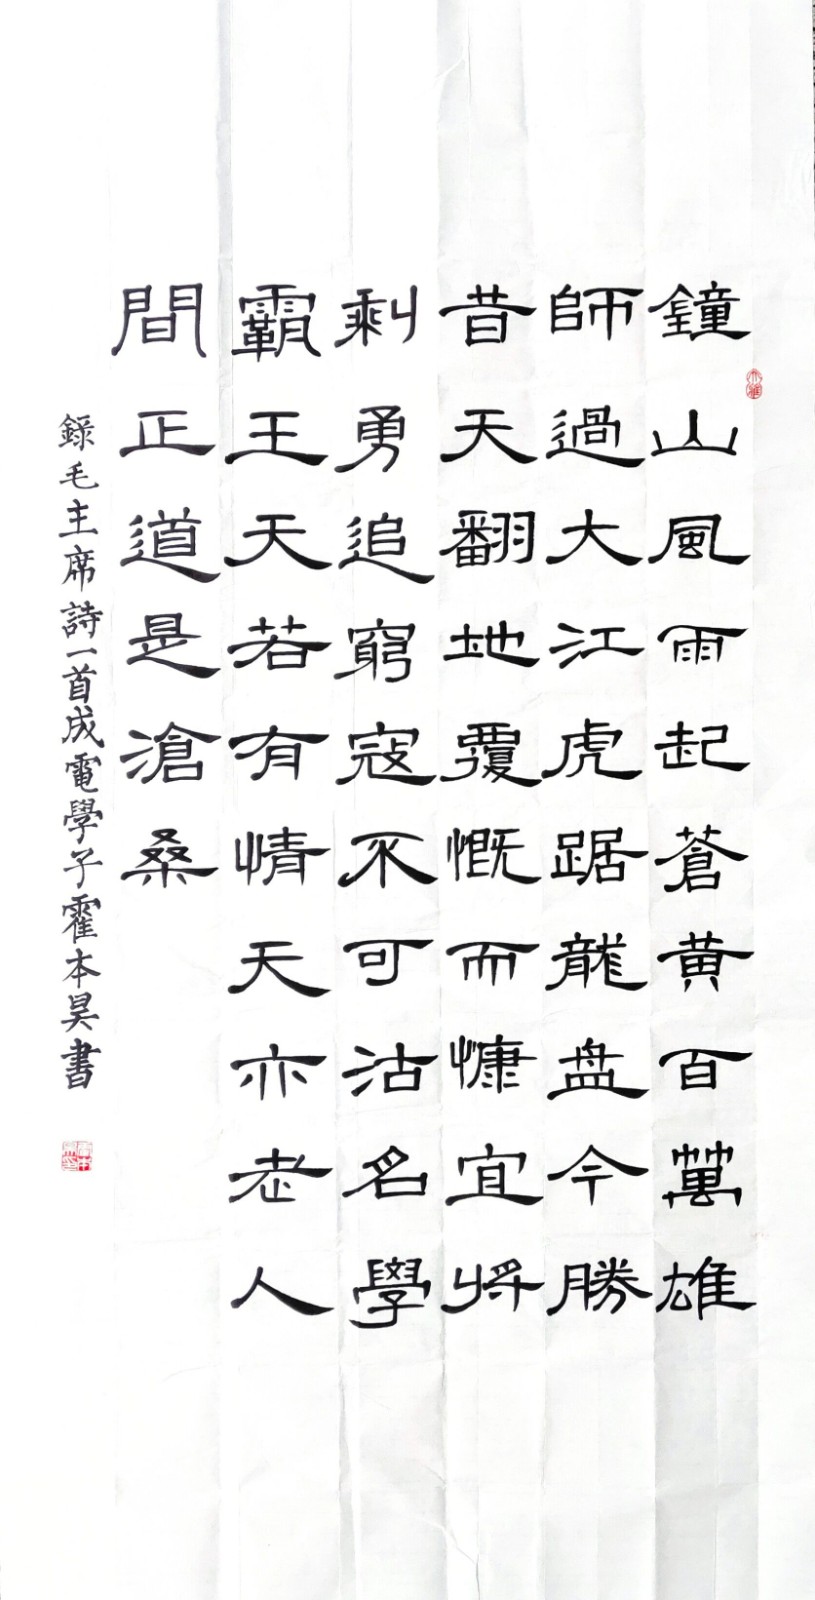 鐘山風雨起蒼黄百萬雄
師過大江虎踞龍盘今勝
昔天翻地覆慨而慷宜将
剩勇追窮寇不可沽名學
霸王天若有情天亦老人
間正道是滄桑
録毛主席詩一首成電學子霍本昊書